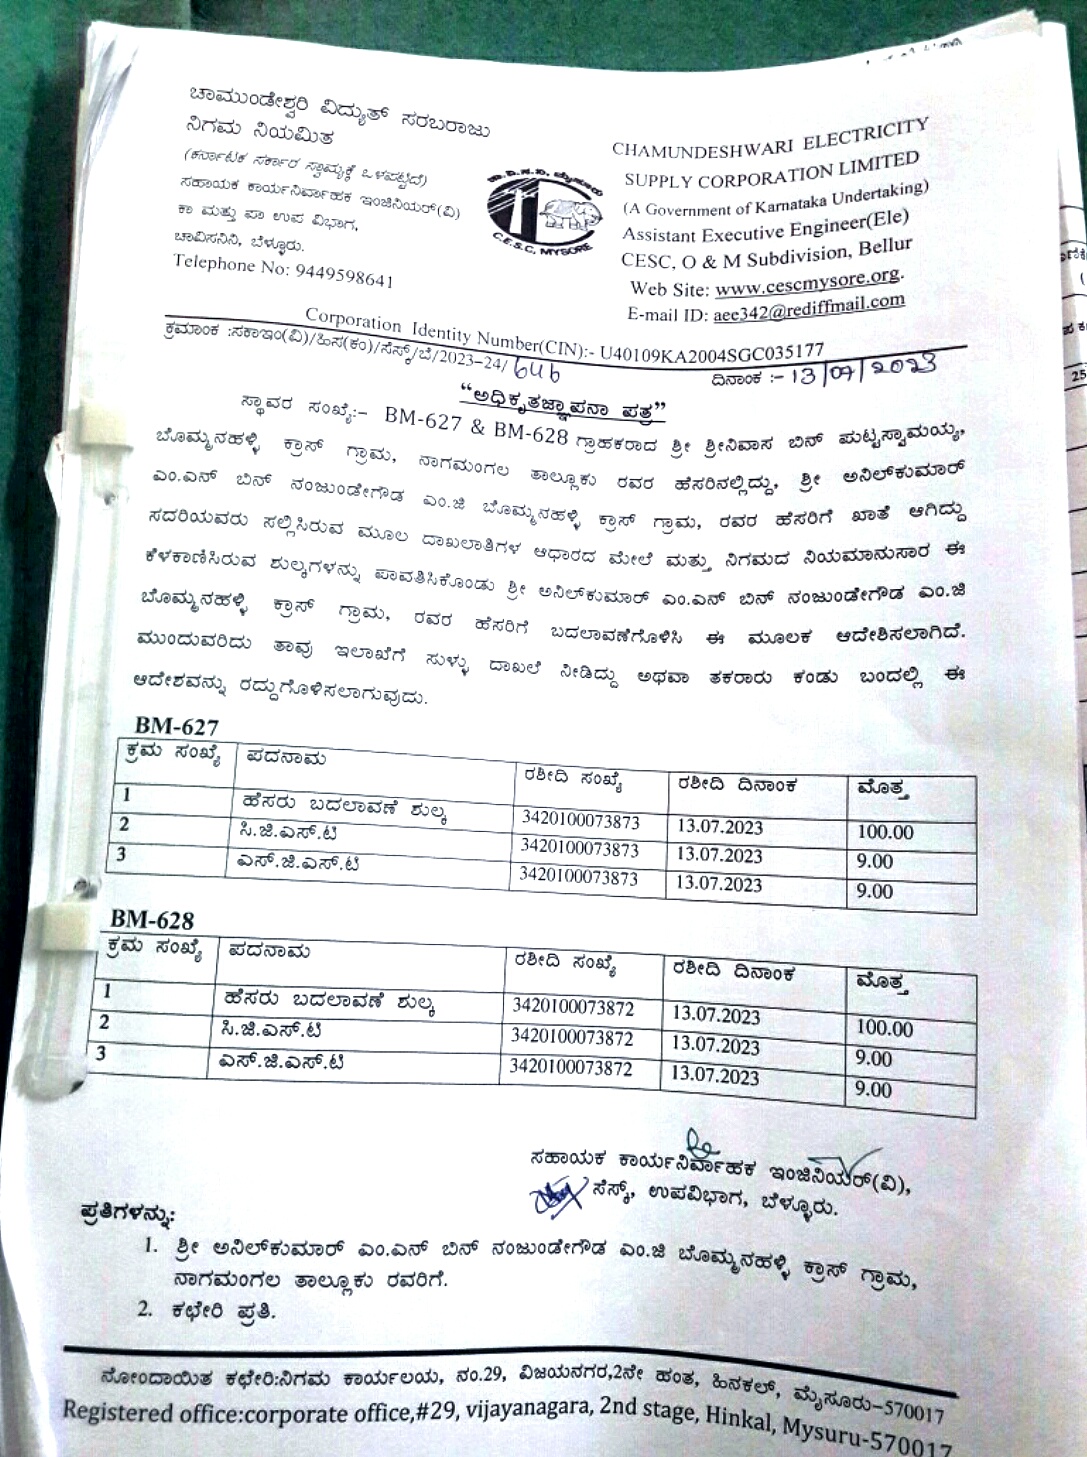 ಚಾಮುಂಡೇಶ್ವರಿ ವಿದ್ಯುತ್ ಸರಬರಾಜು
ನಿಗಮ ನಿಯಮಿತ
(ಕರ್ನಾಟಕ ಸರ್ಕಾರ ಸ್ವಾಮ್ಯಕ್ಕೆ ಒಳಪಟ್ಟಿದೆ)
ಸಹಾಯಕ ಕಾರ್ಯನಿರ್ವಾಹಕ ಇಂಜಿನಿಯರ್(ವಿ)
ಕಾ ಮತ್ತು ಪಾ ಉಪ ವಿಭಾಗ,
ಚಾವಿಸನಿನಿ, ಬೆಳ್ಳೂರು.
Telephone No: 9449598641
ಚಾ.ವಿ.ಸ.ನಿ. ಮೈಸೂರು
C.E.S.C. MYSORE
CHAMUNDESHWARI ELECTRICITY
SUPPLY CORPORATION LIMITED
(A Government of Karnataka Undertaking)
Assistant Executive Engineer(Ele)
CESC, O & M Subdivision, Bellur
Web Site: www.cescmysore.org.
E-mail ID: aee342@rediffmail.com
Corporation Identity Number(CIN):- U40109KA2004SGC035177
ಕ್ರಮಾಂಕ :ಸಕಾಇಂ(ವಿ)/ಹಿಸ(ಕಂ)/ಸೆಸ್ಕ್/ಬೆ/2023-24/ 646 ದಿನಾಂಕ :- 13/07/2023
“ಅಧಿಕೃತಜ್ಞಾಪನಾ ಪತ್ರ”
ಸ್ಥಾವರ ಸಂಖ್ಯೆ:- BM-627 & BM-628 ಗ್ರಾಹಕರಾದ ಶ್ರೀ ಶ್ರೀನಿವಾಸ ಬಿನ್ ಪುಟ್ಟಸ್ವಾಮಯ್ಯ,
ಬೊಮ್ಮನಹಳ್ಳಿ ಕ್ರಾಸ್ ಗ್ರಾಮ, ನಾಗಮಂಗಲ ತಾಲ್ಲೂಕು ರವರ ಹೆಸರಿನಲ್ಲಿದ್ದು, ಶ್ರೀ ಅನಿಲ್‌ಕುಮಾರ್
ಎಂ.ಎನ್ ಬಿನ್ ನಂಜುಂಡೇಗೌಡ ಎಂ.ಜಿ ಬೊಮ್ಮನಹಳ್ಳಿ ಕ್ರಾಸ್ ಗ್ರಾಮ, ರವರ ಹೆಸರಿಗೆ ಖಾತೆ ಆಗಿದ್ದು
ಸದರಿಯವರು ಸಲ್ಲಿಸಿರುವ ಮೂಲ ದಾಖಲಾತಿಗಳ ಆಧಾರದ ಮೇಲೆ ಮತ್ತು ನಿಗಮದ ನಿಯಮಾನುಸಾರ ಈ
ಕೆಳಕಾಣಿಸಿರುವ ಶುಲ್ಕಗಳನ್ನು ಪಾವತಿಸಿಕೊಂಡು ಶ್ರೀ ಅನಿಲ್‌ಕುಮಾರ್ ಎಂ.ಎನ್ ಬಿನ್ ನಂಜುಂಡೇಗೌಡ ಎಂ.ಜಿ
ಬೊಮ್ಮನಹಳ್ಳಿ ಕ್ರಾಸ್ ಗ್ರಾಮ, ರವರ ಹೆಸರಿಗೆ ಬದಲಾವಣೆಗೊಳಿಸಿ ಈ ಮೂಲಕ ಆದೇಶಿಸಲಾಗಿದೆ.
ಮುಂದುವರಿದು ತಾವು ಇಲಾಖೆಗೆ ಸುಳ್ಳು ದಾಖಲೆ ನೀಡಿದ್ದು ಅಥವಾ ತಕರಾರು ಕಂಡು ಬಂದಲ್ಲಿ ಈ
ಆದೇಶವನ್ನು ರದ್ದುಗೊಳಿಸಲಾಗುವುದು.
BM-627
ಕ್ರಮ ಸಂಖ್ಯೆ ಪದನಾಮ ರಶೀದಿ ಸಂಖ್ಯೆ ರಶೀದಿ ದಿನಾಂಕ ಮೊತ್ತ
1 ಹೆಸರು ಬದಲಾವಣೆ ಶುಲ್ಕ 3420100073873 13.07.2023 100.00
2 ಸಿ.ಜಿ.ಎಸ್.ಟಿ 3420100073873 13.07.2023 9.00
3 ಎಸ್.ಜಿ.ಎಸ್.ಟಿ 3420100073873 13.07.2023 9.00
BM-628
ಕ್ರಮ ಸಂಖ್ಯೆ ಪದನಾಮ ರಶೀದಿ ಸಂಖ್ಯೆ ರಶೀದಿ ದಿನಾಂಕ ಮೊತ್ತ
1 ಹೆಸರು ಬದಲಾವಣೆ ಶುಲ್ಕ 3420100073872 13.07.2023 100.00
2 ಸಿ.ಜಿ.ಎಸ್.ಟಿ 3420100073872 13.07.2023 9.00
3 ಎಸ್.ಜಿ.ಎಸ್.ಟಿ 3420100073872 13.07.2023 9.00
ಸಹಾಯಕ ಕಾರ್ಯನಿರ್ವಾಹಕ ಇಂಜಿನಿಯರ್(ವಿ),
ಸೆಸ್ಕ್, ಉಪವಿಭಾಗ, ಬೆಳ್ಳೂರು.
ಪ್ರತಿಗಳನ್ನು:
1. ಶ್ರೀ ಅನಿಲ್‌ಕುಮಾರ್ ಎಂ.ಎನ್ ಬಿನ್ ನಂಜುಂಡೇಗೌಡ ಎಂ.ಜಿ ಬೊಮ್ಮನಹಳ್ಳಿ ಕ್ರಾಸ್ ಗ್ರಾಮ,
ನಾಗಮಂಗಲ ತಾಲ್ಲೂಕು ರವರಿಗೆ.
2. ಕಛೇರಿ ಪ್ರತಿ.
ನೋಂದಾಯಿತ ಕಛೇರಿ:ನಿಗಮ ಕಾರ್ಯಲಯ, ನಂ.29, ವಿಜಯನಗರ,2ನೇ ಹಂತ, ಹಿನಕಲ್, ಮೈಸೂರು-570017
Registered office:corporate office,#29, vijayanagara, 2nd stage, Hinkal, Mysuru-570017